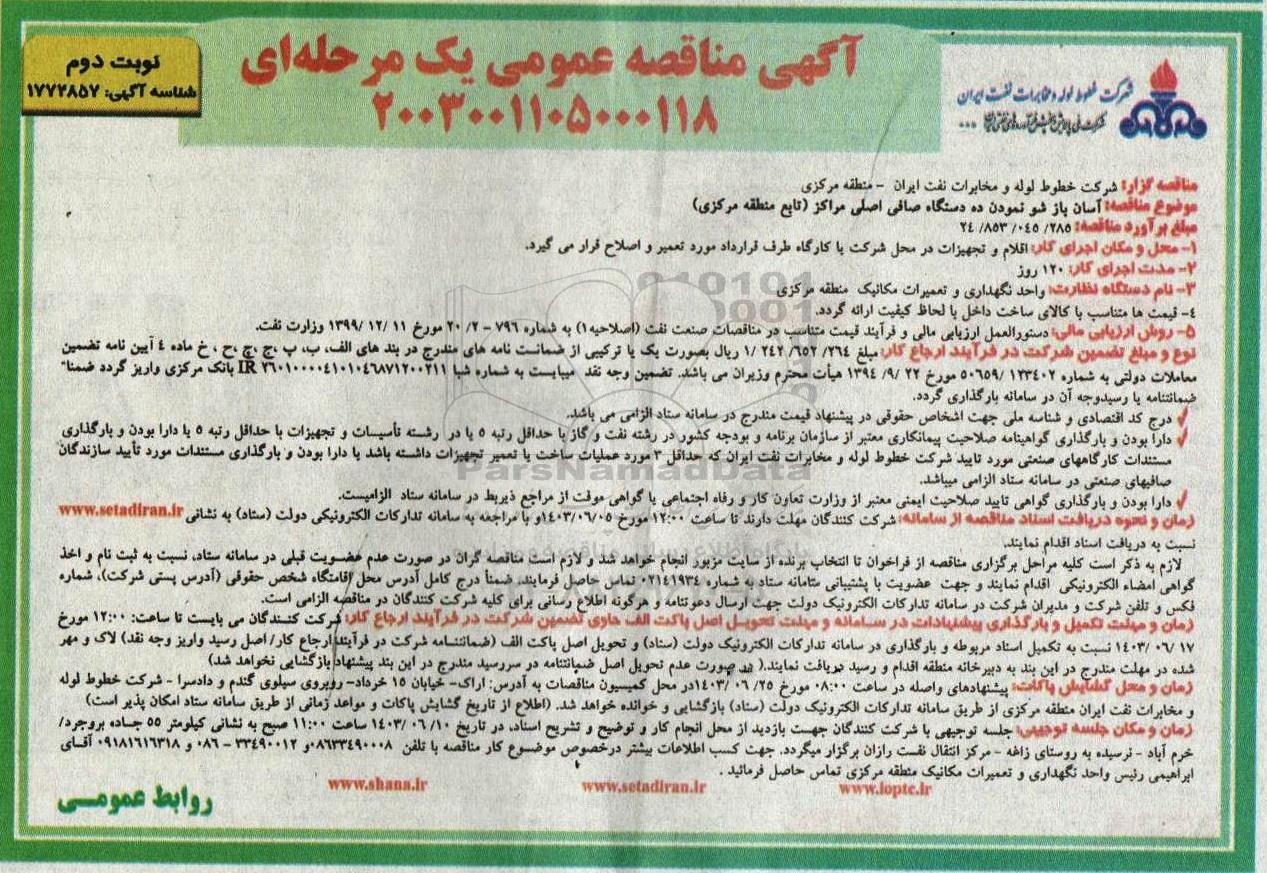 آگهی مناقصه عمومی یک مرحله‌ای
۲۰۰۳۰۰۱۱۰۵۰۰۰۱۱۸
نوبت دوم
شناسه آگهی: ۱۷۷۲۸۵۷
شرکت خطوط لوله و مخابرات نفت ایران
مناقصه گزار: شرکت خطوط لوله و مخابرات نفت ایران - منطقه مرکزی
موضوع مناقصه: آسان باز شو نمودن ده دستگاه صافی اصلی مراکز (تابع منطقه مرکزی)
مبلغ برآورد مناقصه: ۲۴/ ۸۵۳/ ۰۴۵/ ۲۸۵
۱- محل و مکان اجرای کار: اقلام و تجهیزات در محل شرکت یا کارگاه طرف قرارداد مورد تعمیر و اصلاح قرار می گیرد.
۲- مدت اجرای کار: ۱۲۰ روز
۳- نام دستگاه نظارت: واحد نگهداری و تعمیرات مکانیک منطقه مرکزی
۴- قیمت ها متناسب با کالای ساخت داخل با لحاظ کیفیت ارائه گردد.
۵- روش ارزیابی مالی: دستورالعمل ارزیابی مالی و فرآیند قیمت متناسب در مناقصات صنعت نفت (اصلاحیه۱) به شماره ۷۹۶ - ۲۰/۲ مورخ ۱۱ /۱۲ /۱۳۹۹ وزارت نفت.
نوع و مبلغ تضمین شرکت در فرآیند ارجاع کار: مبلغ ۲۶۴/ ۶۵۲/ ۲۴۲ /۱ ریال بصورت یک یا ترکیبی از ضمانت نامه های مندرج در بند های الف، ب، پ ،ج ،چ ،ح ، خ ماده ٤ آیین نامه تضمین
معاملات دولتی به شماره ۱۲۳۴۰۲ /۵۰۶۵۹ مورخ ۲۲ /۹/ ۱۳۹۴ هیأت محترم وزیران می باشد. تضمین وجه نقد میبایست به شماره شبا IR ۲۶۰۱۰۰۰۰۴۱۰۱۰۴۶۸۷۱۲۰۰۲۱۱ بانک مرکزی واریز گردد ضمنا"
ضمانتنامه یا رسیدوجه آن در سامانه بارگذاری گردد.
✓ درج کد اقتصادی و شناسه ملی جهت اشخاص حقوقی در پیشنهاد قیمت مندرج در سامانه ستاد الزامی می باشد.
✓ دارا بودن و بارگذاری گواهینامه صلاحیت پیمانکاری معتبر از سازمان برنامه و بودجه کشور در رشته نفت و گاز با حداقل رتبه ۵ یا در رشته تأسیسات و تجهیزات با حداقل رتبه ۵ یا دارا بودن و بارگذاری
مستندات کارگاههای صنعتی مورد تایید شرکت خطوط لوله و مخابرات نفت ایران که حداقل ۳ مورد عملیات ساخت یا تعمیر تجهیزات داشته باشد یا دارا بودن و بارگذاری مستندات مورد تأیید سازندگان
صافیهای صنعتی در سامانه ستاد الزامی میباشد.
✓ دارا بودن و بارگذاری گواهی تایید صلاحیت ایمنی معتبر از وزارت تعاون کار و رفاه اجتماعی یا گواهی موقت از مراجع ذیربط در سامانه ستاد الزامیست.
زمان و نحوه دریافت اسناد مناقصه از سامانه: شرکت کنندگان مهلت دارند تا ساعت ۱۲:۰۰ مورخ ۱۴۰۳/۰۶/۰۵و با مراجعه به سامانه تدارکات الکترونیکی دولت (ستاد) به نشانی www.setadiran.ir
نسبت به دریافت اسناد اقدام نمایند.
لازم به ذکر است کلیه مراحل برگزاری مناقصه از فراخوان تا انتخاب برنده از سایت مزبور انجام خواهد شد و لازم است مناقصه گران در صورت عدم عضویت قبلی در سامانه ستاد، نسبت به ثبت نام و اخذ
گواهی امضاء الکترونیکی اقدام نمایند و جهت عضویت با پشتیبانی سامانه ستاد به شماره ۰۲۱۴۱۹۳۴ تماس حاصل فرمایند. ضمناً درج کامل آدرس محل اقامتگاه شخص حقوقی (آدرس پستی شرکت)، شماره
فکس و تلفن شرکت و مدیران شرکت در سامانه تدارکات الکترونیک دولت جهت ارسال دعوتنامه و هرگونه اطلاع رسانی برای کلیه شرکت کنندگان در مناقصه الزامی است.
زمان و مهلت تکمیل و بارگذاری پیشنهادات در سامانه و مهلت تحویل اصل پاکت الف حاوی تضمین شرکت در فرآیند ارجاع کار: شرکت کنندگان می بایست تا ساعت: ۱۲:۰۰ مورخ
۱۷ /۰۶ /۱۴۰۳ نسبت به تکمیل اسناد مربوطه و بارگذاری در سامانه تدارکات الکترونیک دولت (ستاد) و تحویل اصل پاکت الف (ضمانتنامه شرکت در فرآیند ارجاع کار/ اصل رسید واریز وجه نقد) لاک و مهر
شده در مهلت مندرج در این بند به دبیرخانه منطقه اقدام و رسید دریافت نمایند.( در صورت عدم تحویل اصل ضمانتنامه در سررسید مندرج در این بند پیشنهاد بازگشایی نخواهد شد)
زمان و محل گشایش پاکات: پیشنهادهای واصله در ساعت ۰۸:۰۰ مورخ ۲۵/ ۰۶ /۱۴۰۳در محل کمیسیون مناقصات به آدرس: اراک- خیابان ۱۵ خرداد- روبروی سیلوی گندم و دادسرا - شرکت خطوط لوله
و مخابرات نفت ایران منطقه مرکزی از طریق سامانه تدارکات الکترونیک دولت (ستاد) بازگشایی و خوانده خواهد شد. (اطلاع از تاریخ گشایش پاکات و مواعد زمانی از طریق سامانه ستاد امکان پذیر است)
زمان و مکان جلسه توجیهی: جلسه توجیهی با شرکت کنندگان جهت بازدید از محل انجام کار و توضیح و تشریح اسناد، در تاریخ ۱۰/ ۰۶/ ۱۴۰۳ ساعت ۱۱:۰۰ صبح به نشانی کیلومتر ۵۵ جساده بروجرد/
خرم آباد - نرسیده به روستای زاغه - مرکز انتقال نفت رازان برگزار میگردد. جهت کسب اطلاعات بیشتر درخصوص موضوع کار مناقصه با تلفن ۰۸۶۳۳۴۹۰۰۰۸و ۳۳۴۹۰۰۱۲ - ۰۸۶ و ۰۹۱۸۱۶۱۶۳۱۸ آقسای
ابراهیمی رئیس واحد نگهداری و تعمیرات مکانیک منطقه مرکزی تماس حاصل فرمائید .
www.ioptc.ir www.setadiran.ir www.shana.ir
روابط عمومی
ParsNamadData